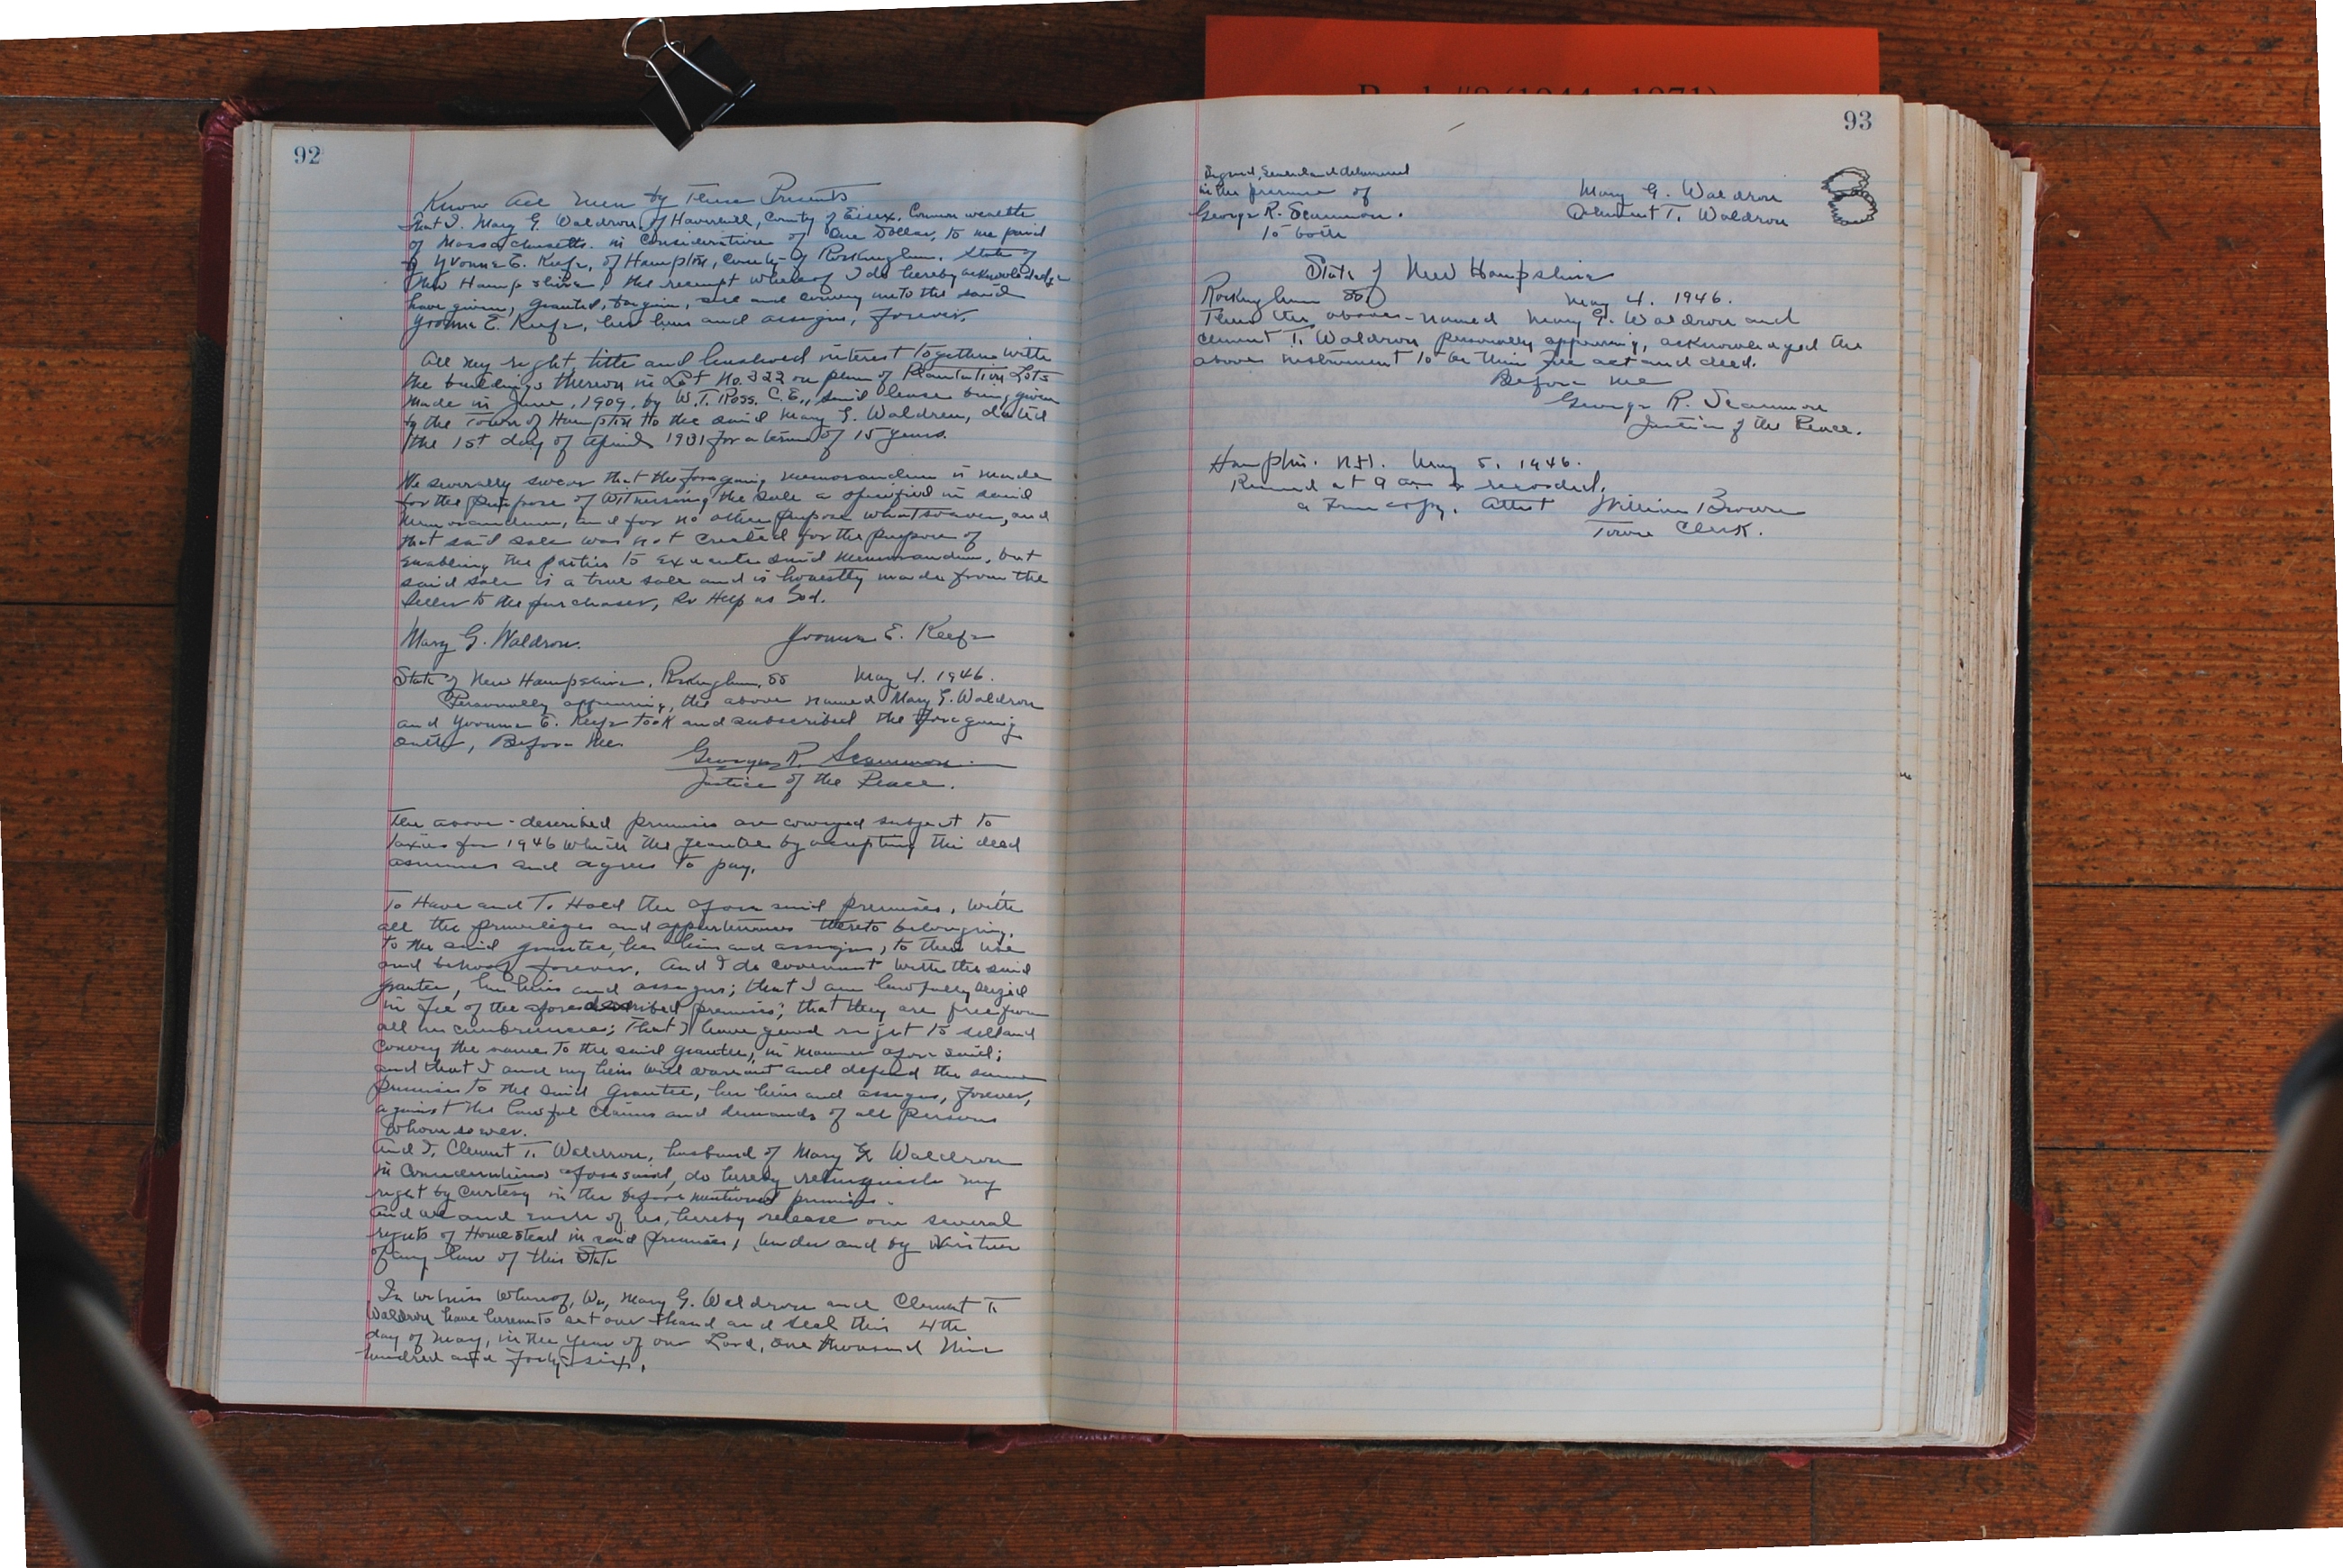 92
Know All Men by These Presents
That I, Mary G. Waldron, of Haverhill, County of Essex, Commonwealth
of Massachusetts. in Consideration of One Dollar, to me paid
by Yvonne E. Keefe, of Hampton, County of Rockingham, State of
New Hampshire, the receipt whereof I do hereby acknowledge
have given, granted, bargain, sell and convey unto the said
Yvonne E. Keefe, her heirs and assigns, forever.
All my right, title and leasehold interest together with
the buildings thereon in Lot No. 322 on plan of Plantation Lots
made in June, 1909, by W.T. Ross, C.E., said lease being given
by the Town of Hampton to the said Mary G. Waldron, dated
the 1st day of April 1931 for a term of 15 years.
We severally swear that the foregoing memorandum is made
for the purpose of witnessing the sale a specified in said
Memorandum, and for no other purpose whatsoever, and
that said sale was not created for the purpose of
enabling the parties to execute said memorandum, but
said sale is a true sale and is honestly made from the
seller to the purchaser, So Help us God.
Mary G. Waldron. Yvonne E. Keefe
State of New Hampshire, Rockingham, SS May 4. 1946.
Personally appearing, the above named Mary G. Waldron
and Yvonne E. Keefe took and subscribed the foregoing
oath, Before me
George R. Scammon.
Justice of the Peace.
The above-described premises are conveyed subject to
taxes for 1946 which the grantee by accepting this deed
assumes and agrees to pay.
To Have and To Hold the aforesaid premises, with
all the privileges and appurtenances thereto belonging,
to the said grantee, her heirs and assigns, to their use
and behoof forever. And I do covenant with the said
grantee, her heirs and assigns; that I am lawfully seized
in fee of the aforedescribed premises; that they are free from
all incumbrances; That I have good right to sell and
convey the same to the said grantee, in manner aforesaid;
and that I and my heirs will warrant and defend the same
premises to the said Grantee, her heirs and assigns, forever,
against the lawful claims and demands of all persons
whomsoever.
And I, Clement T. Waldron, husband of Mary G. Waldron
in Consideration aforesaid, do hereby relinquish my
right by Curtesy in the before mentioned premises.
And we and each of us, hereby release our several
rights of Homestead in said premises, under and by virtue
of any law of this State
In witness Whereof, We, Mary G. Waldron and Clement T.
Waldron have hereunto set our hand and seal this 4th
day of May, in the year of our Lord, one thousand Nine
hundred and Forty-six.
Book #8 (1944 - 1971)
93
Signed, Sealed and delivered
in the presence of Mary G. Waldron
George R. Scammon. Clement T. Waldron
to both
State of New Hampshire
Rockingham SS. May 4. 1946.
Then the above-named Mary G. Waldron and
Clement T. Waldron personally appearing, acknowledged the
above instrument to be their free act and deed.
Before me
George R. Scammon
Justice of the Peace.
Hampton. N.H. May 5. 1946.
Received at 9 am & recorded.
a True copy. Attest William Brown
Town Clerk.